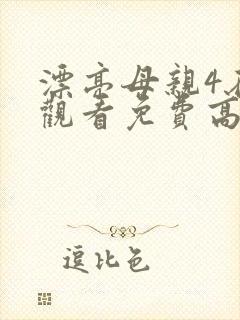 漂亮母親4在
觀看免費高
逗比色